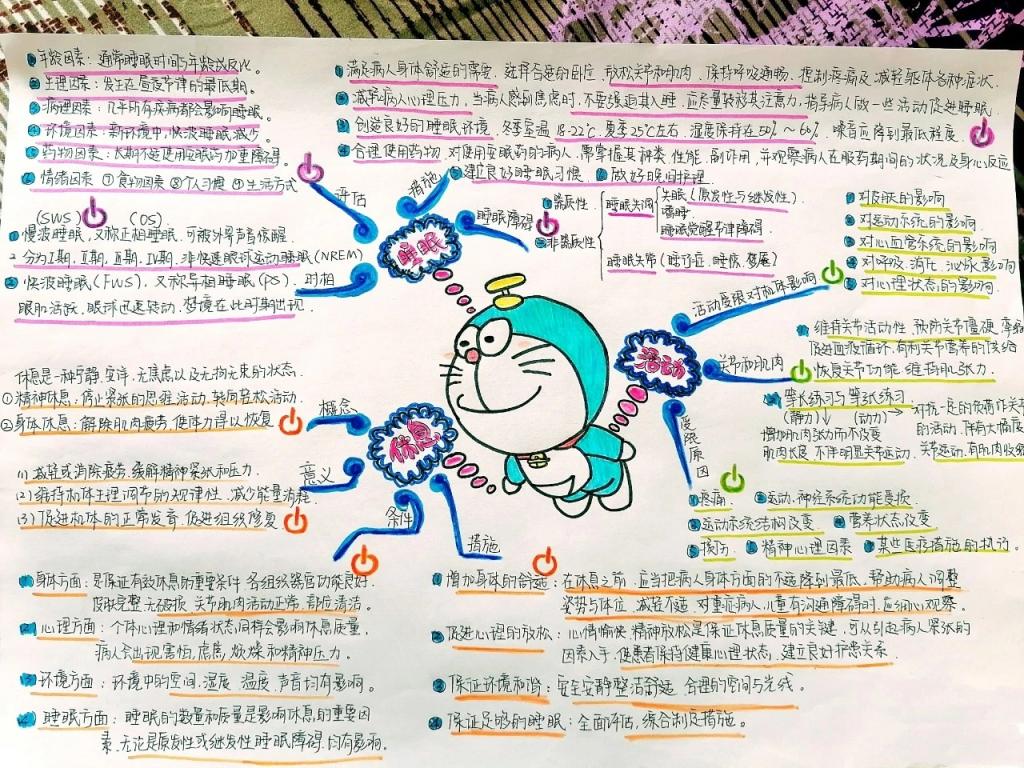 ①年龄因素：通常睡眠时间与年龄成反比。
②生理因素：发生在昼夜节律的最低期。
③病理因素：几乎所有疾病都会影响睡眠
④环境因素：新环境中，快波睡眠减少
⑤药物因素：长期不适使用安眠药加重障碍。
⑥情绪因素 ⑦食物因素 ⑧个人习惯 ⑨生活方式
评估
①满足病人身体舒适的需要，选择合适的卧位，放松关节和肌肉，保持呼吸通畅，控制疾病及减轻躯体各种症状.
②减轻病人心理压力，当病人感到焦虑时，不要强迫其入睡，应尽量转移其注意力，指导病人做一些活动促进睡眠.
③创造良好的睡眠环境，冬季室温18-22℃，夏季25℃左右，湿度保持在50%～60%，噪音应降到最低程度。
④合理使用药物，对使用安眠药的病人，需掌握其种类、性能、副作用，并观察病人在服药期间的状况及身心反应
⑤建立良好睡眠习惯 ⑥做好晚间护理
措施
睡眠
睡眠障碍
①器质性
②非器质性
睡眠失调
失眠（原发性与继发性）
嗜睡
睡眠觉醒节律障碍
睡眠失常（睡行症、睡惊、梦魇）
(SWS) (OS)
①慢波睡眠，又称正相睡眠，可被外界声音惊醒
分为Ⅰ期，Ⅱ期，Ⅲ期，Ⅳ期，非快速眼球运动睡眠(NREM)
②快波睡眠(FWS)，又称异相睡眠(PS)，
眼肌活跃，眼球迅速转动，梦境在此时期出现.
时相
活动
活动受限对机体影响
①对皮肤的影响
②对运动系统的影响
③对心血管系统的影响
④对呼吸、消化、泌尿影响
⑤对心理状态的影响.
关节和肌肉
维持关节活动性，预防关节僵硬，
促进血液循环，有利关节营养的供给
恢复关节功能，维持肌张力.
等长练习与等张练习
(静力) (动力) → 对抗一定的负荷作关节
增加肌肉张力而不改变 的活动，伴有大幅度
肌肉长度，不伴明显关节运动. 关节运动，有肌肉收缩
受限原因
①疼痛 ②运动、神经系统功能受损
③运动系统结构改变 ④营养状态改变
⑤损伤 ⑥精神心理因素 ⑦某些医疗措施的执行.
休息
概念
休息是一种宁静、安详、无焦虑以及无拘无束的状态.
①精神休息，停止紧张的思维活动，转向轻松活动.
②身体休息：解除肌肉疲劳，使体力得以恢复
意义
(1)减轻或消除疲劳，缓解精神紧张和压力.
(2)维持机体生理调节的规律性，减少能量消耗
(3)促进机体的正常发育，促进组织修复
条件
①身体方面：是保证有效休息的重要条件，各组织器官功能良好.
皮肤完整、无破损，关节肌肉活动正常，部位清洁。
②心理方面：个体心理和情绪状态同样会影响休息质量，
病人会出现害怕，焦虑，烦燥和精神压力.
③环境方面：环境中的空间、湿度、温度、声音均有影响。
④睡眠方面：睡眠的数量和质量是影响休息的重要因
素，无论是原发性或继发性睡眠障碍，均有影响.
措施
①增加身体的舒适：在休息之前，应当把病人身体方面的不适降到最低，帮助病人调整
姿势与体位，减轻不适，对重症病人，儿童有沟通障碍时，应细心观察.
②促进心理的放松：心情愉快，精神放松是保证休息质量的关键，可从引起病人紧张的
因素入手，使患者保持健康心理状态，建立良好护患关系.
③保证环境和谐：安全安静整洁舒适，合理的空间与光线.
④保证足够的睡眠：全面评估，综合制定措施。